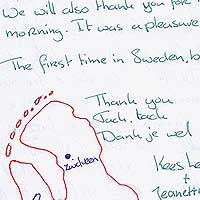 We will also thank you for
morning. It was a pleasure
The first time in Sweden, b
Thank you
Tack, tack
Dank je wel
Zwicheen
Kees
+
Jeanette